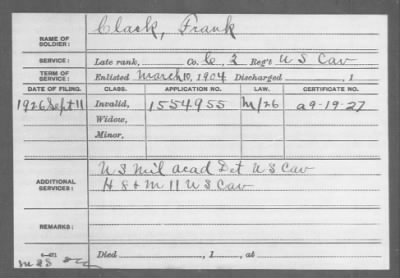 NAME OF SOLDIER: Clack, Frank
SERVICE: Late rank, Co. C, 2 Reg't U S Cav
TERM OF SERVICE: Enlisted March 10, 1904 Discharged , 1
DATE OF FILING. CLASS. APPLICATION NO. LAW. CERTIFICATE NO.
1926 Sept 11 Invalid, 1554955 M/26 a 9-19-27
Widow,
Minor,
ADDITIONAL SERVICES: U S Mil acad Det U S Cav
H 8 + M 11 U S Cav
REMARKS:
Died , 1 , at